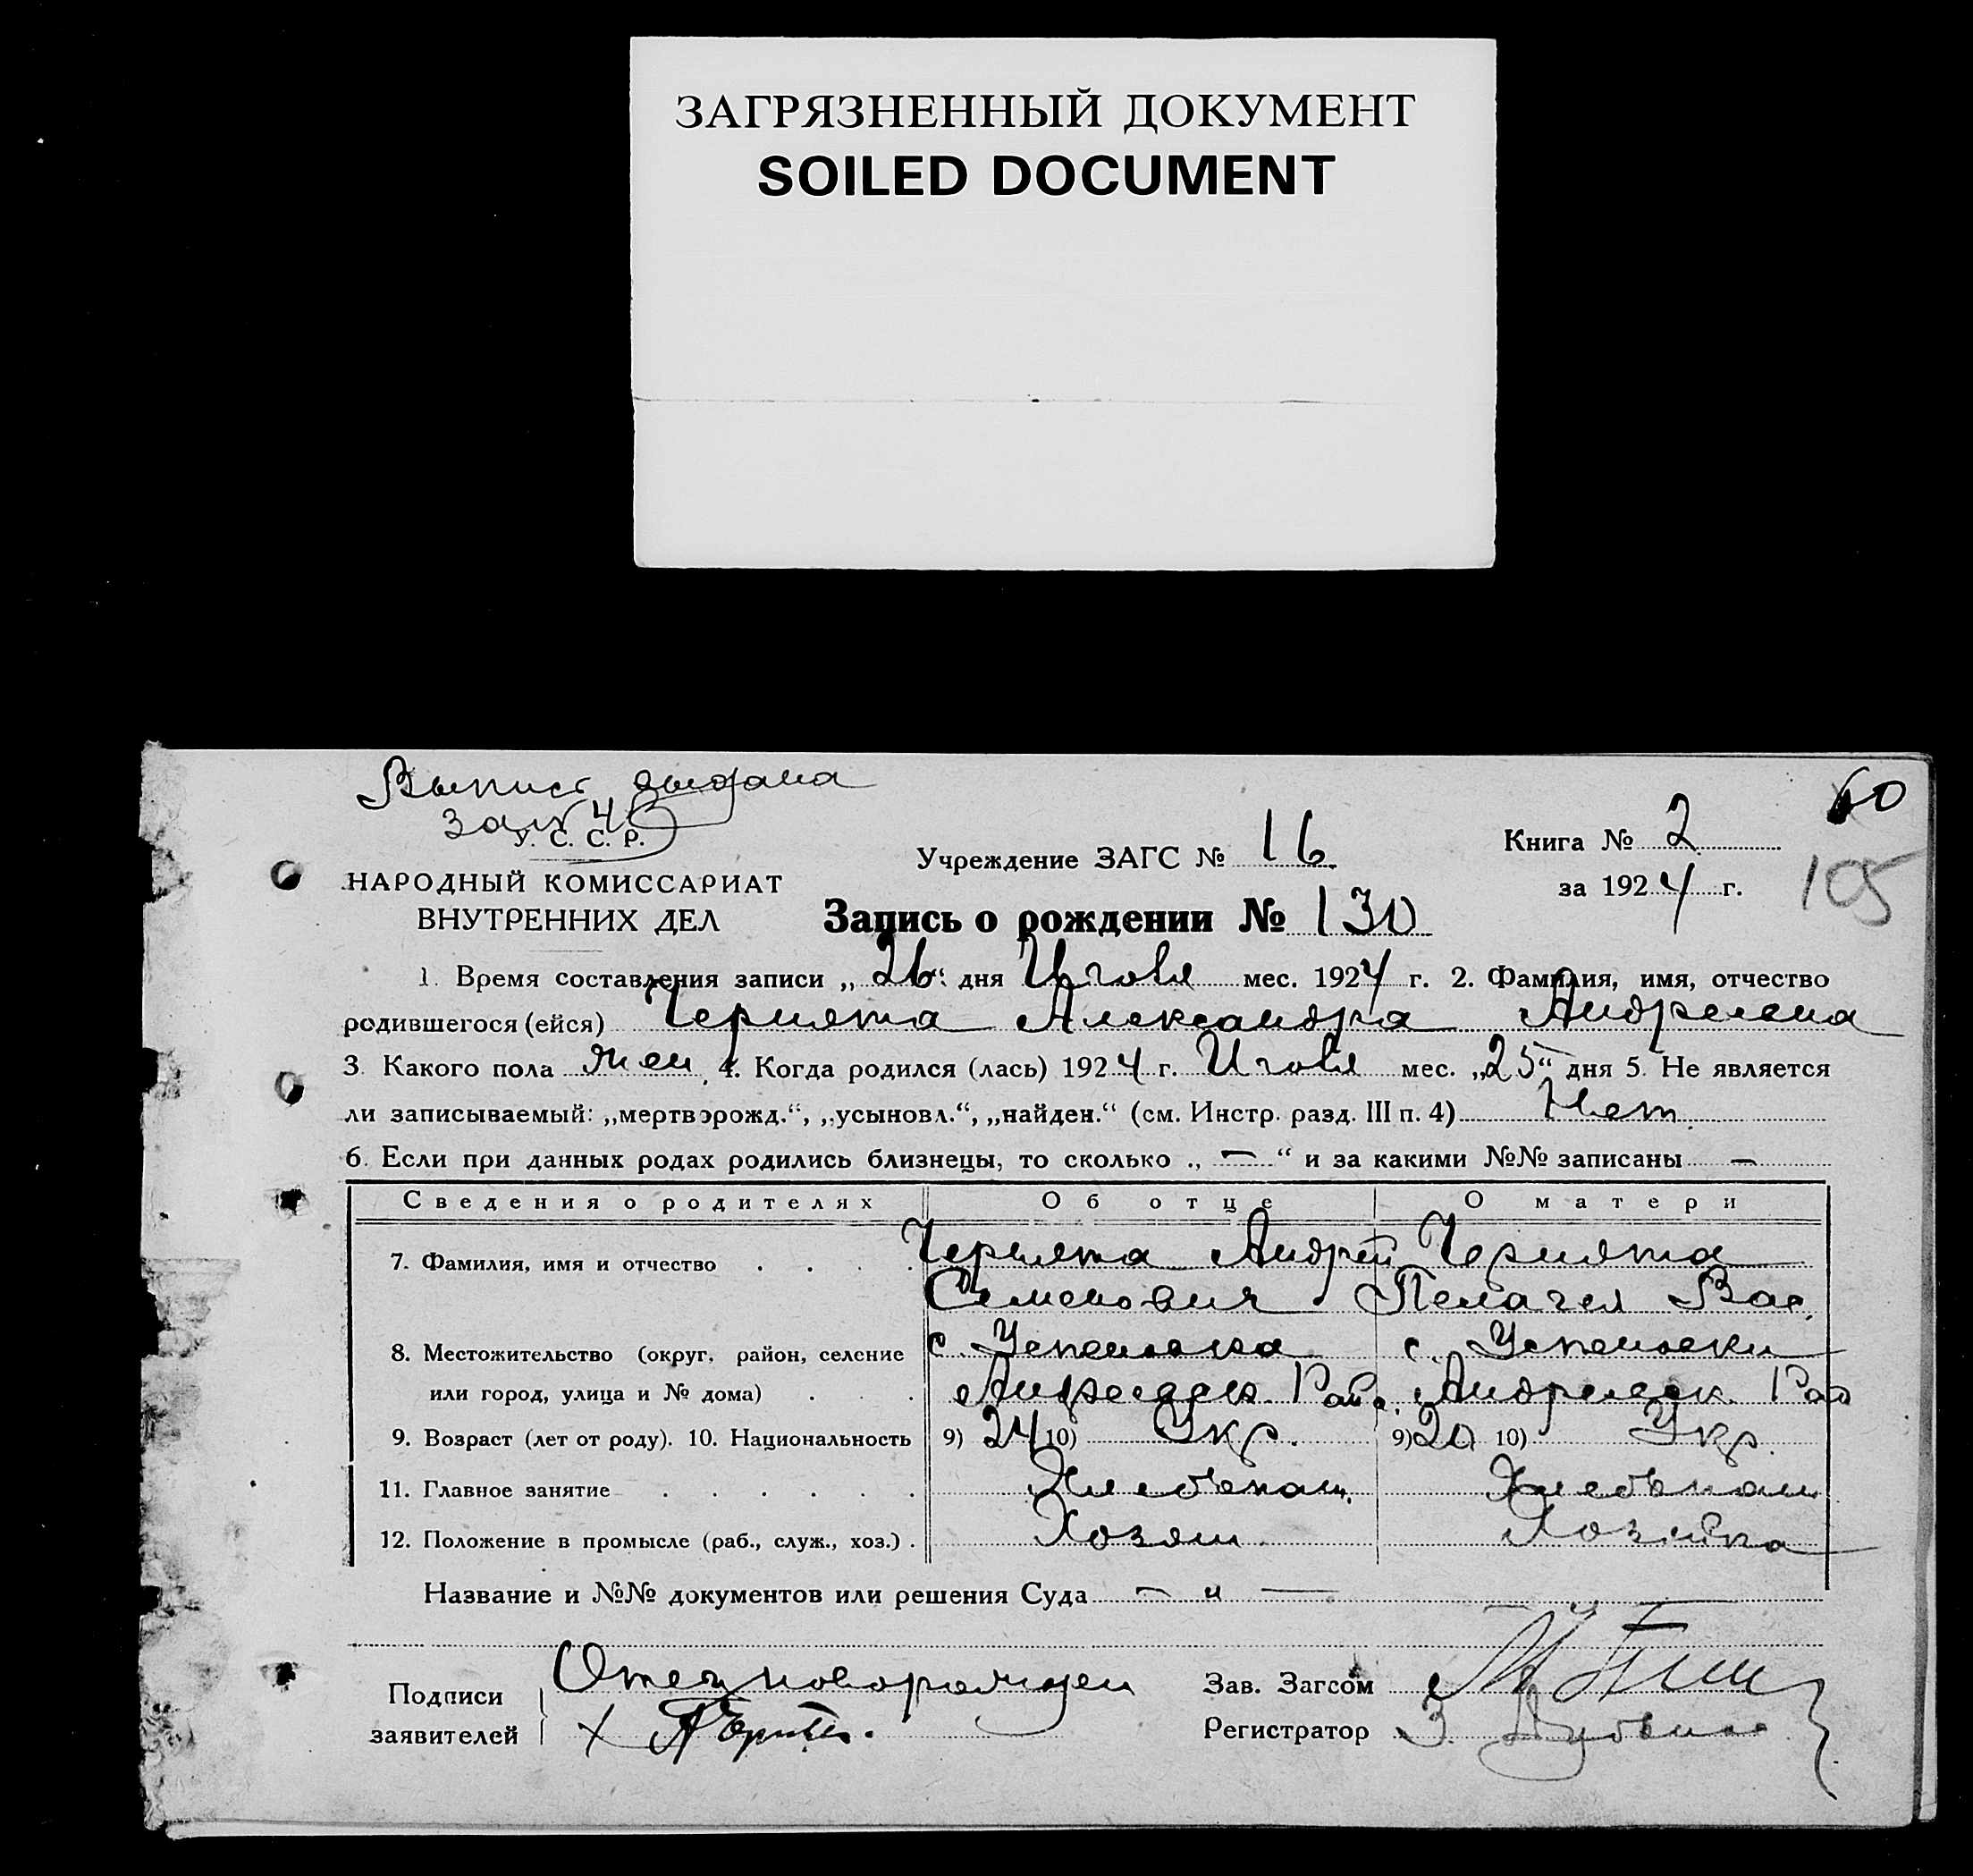 ЗАГРЯЗНЕННЫЙ ДОКУМЕНТ
SOILED DOCUMENT
Выпись выдана
У. С. С. Р.
НАРОДНЫЙ КОМИССАРИАТ
ВНУТРЕННИХ ДЕЛ
Учреждение ЗАГС № 16
Книга № 2
60
за 1924 г.
105
Запись о рождении № 130
1. Время составления записи „26“ дня Июля мес. 1924 г. 2. Фамилия, имя, отчество
родившегося (ейся) Чернята Александра Андреевна
3. Какого пола жен 4. Когда родился (лась) 1924 г. Июля мес. „25“ дня 5. Не является
ли записываемый: „мертворожд.“, „усыновл.“, „найден.“ (см. Инстр. разд. III п. 4) Нет
6. Если при данных родах родились близнецы, то сколько „ — “ и за какими №№ записаны —
Сведения о родителях Об отце О матери
7. Фамилия, имя и отчество Чернята Андрей Чернята
Семенович Пелагея Вас.
8. Местожительство (округ, район, селение с. Успеновка с. Успеновки
или город, улица и № дома) Андреевск. Райо. Андреевск. Рай
9. Возраст (лет от роду). 10. Национальность 9) 24 10) Укр. 9) 20 10) Укр.
11. Главное занятие Хлебопаш. Хлебопаш
12. Положение в промысле (раб., служ., хоз.) Хозяин Хозяйка
Название и №№ документов или решения Суда — „ —
Подписи
заявителей
Отец новорожден
Зав. Загсом
Регистратор